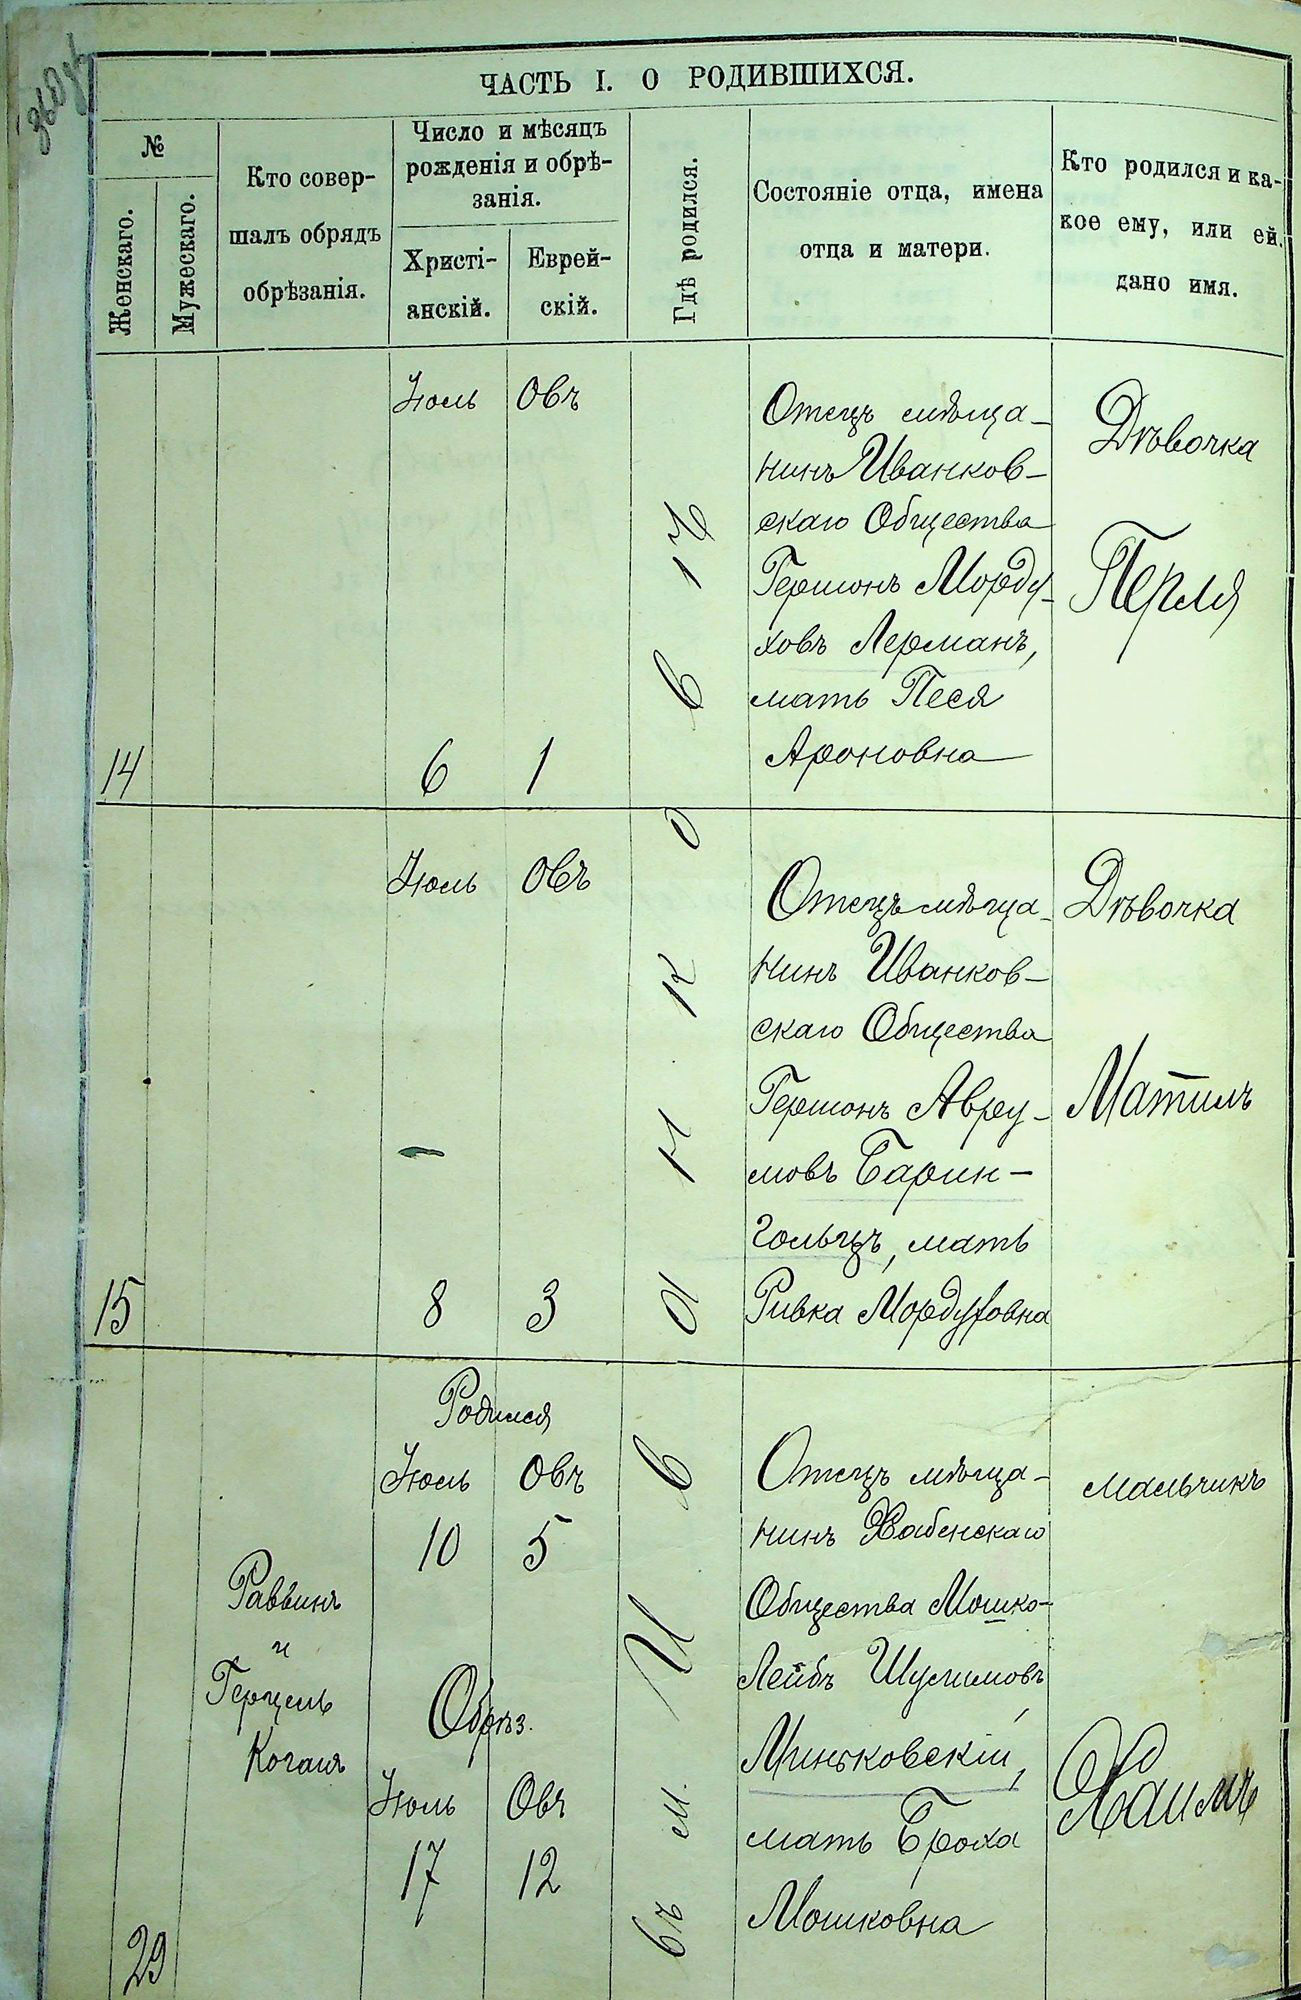 ЧАСТЬ I. О РОДИВШИХСЯ.
№
Женскаго.
Мужескаго.
Кто совер-
шалъ обрядъ
обрѣзанія.
Число и мѣсяцъ
рожденія и обрѣ-
занія.
Христі-
анскій.
Еврей-
скій.
Гдѣ родился.
Состояніе отца, имена
отца и матери.
Кто родился и ка-
кое ему, или ей,
дано имя.
въ м. Иванковѣ
14
Іюль
6
Овъ
1
Отецъ мѣща-
нинъ Иванков-
скаго Общества
Гершонъ Морду-
ховъ Лерманъ,
мать Песя
Ароновна
Дѣвочка
Перля
15
Іюль
8
Овъ
3
Отецъ мѣща-
нинъ Иванков-
скаго Общества
Гершонъ Авру-
мовъ Барин-
гольцъ, мать
Ривка Мордуховна
Дѣвочка
Матиль
29
Раввинъ
и
Герцель
Коганъ
Родился
Іюль Овъ
10 5
Обрѣз.
Іюль Овъ
17 12
Отецъ мѣща-
нинъ Хабенскаго
Общества Мошко-
Лейбъ Шулимовъ
Миньковскій,
мать Броха
Мошковна
Мальчикъ
Хаимъ